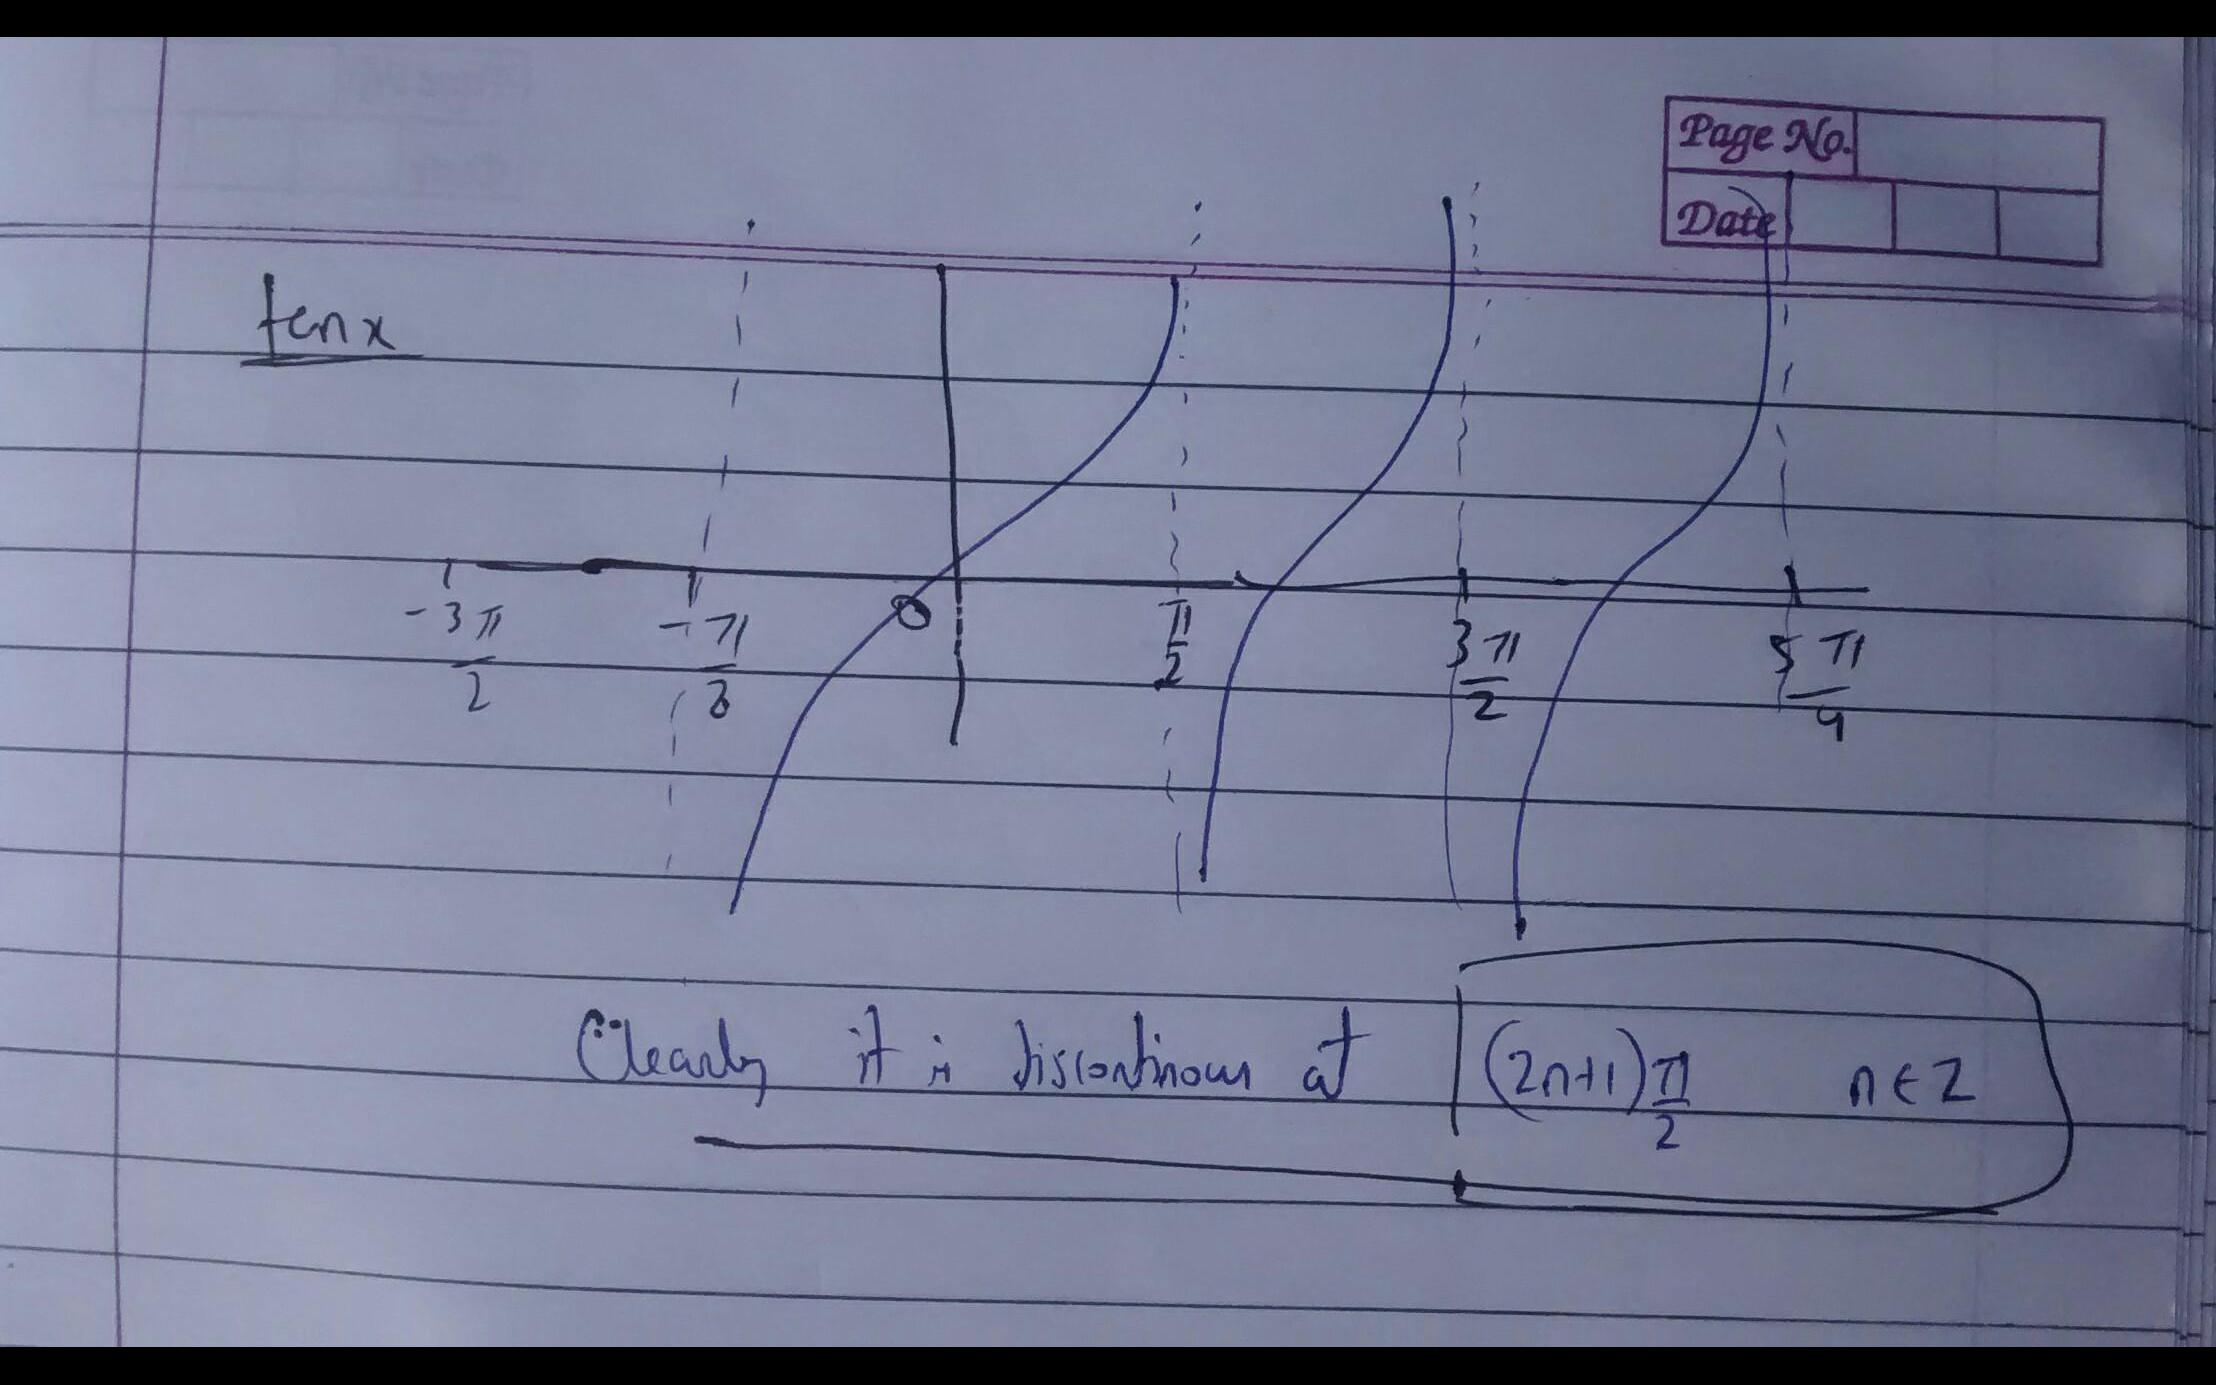 Page No.
Date
tan x
-3π/2 -π/3 0 π/2 3π/2 5π/4
Clearly it is discontinous at (2n+1)π/2 n∈Z